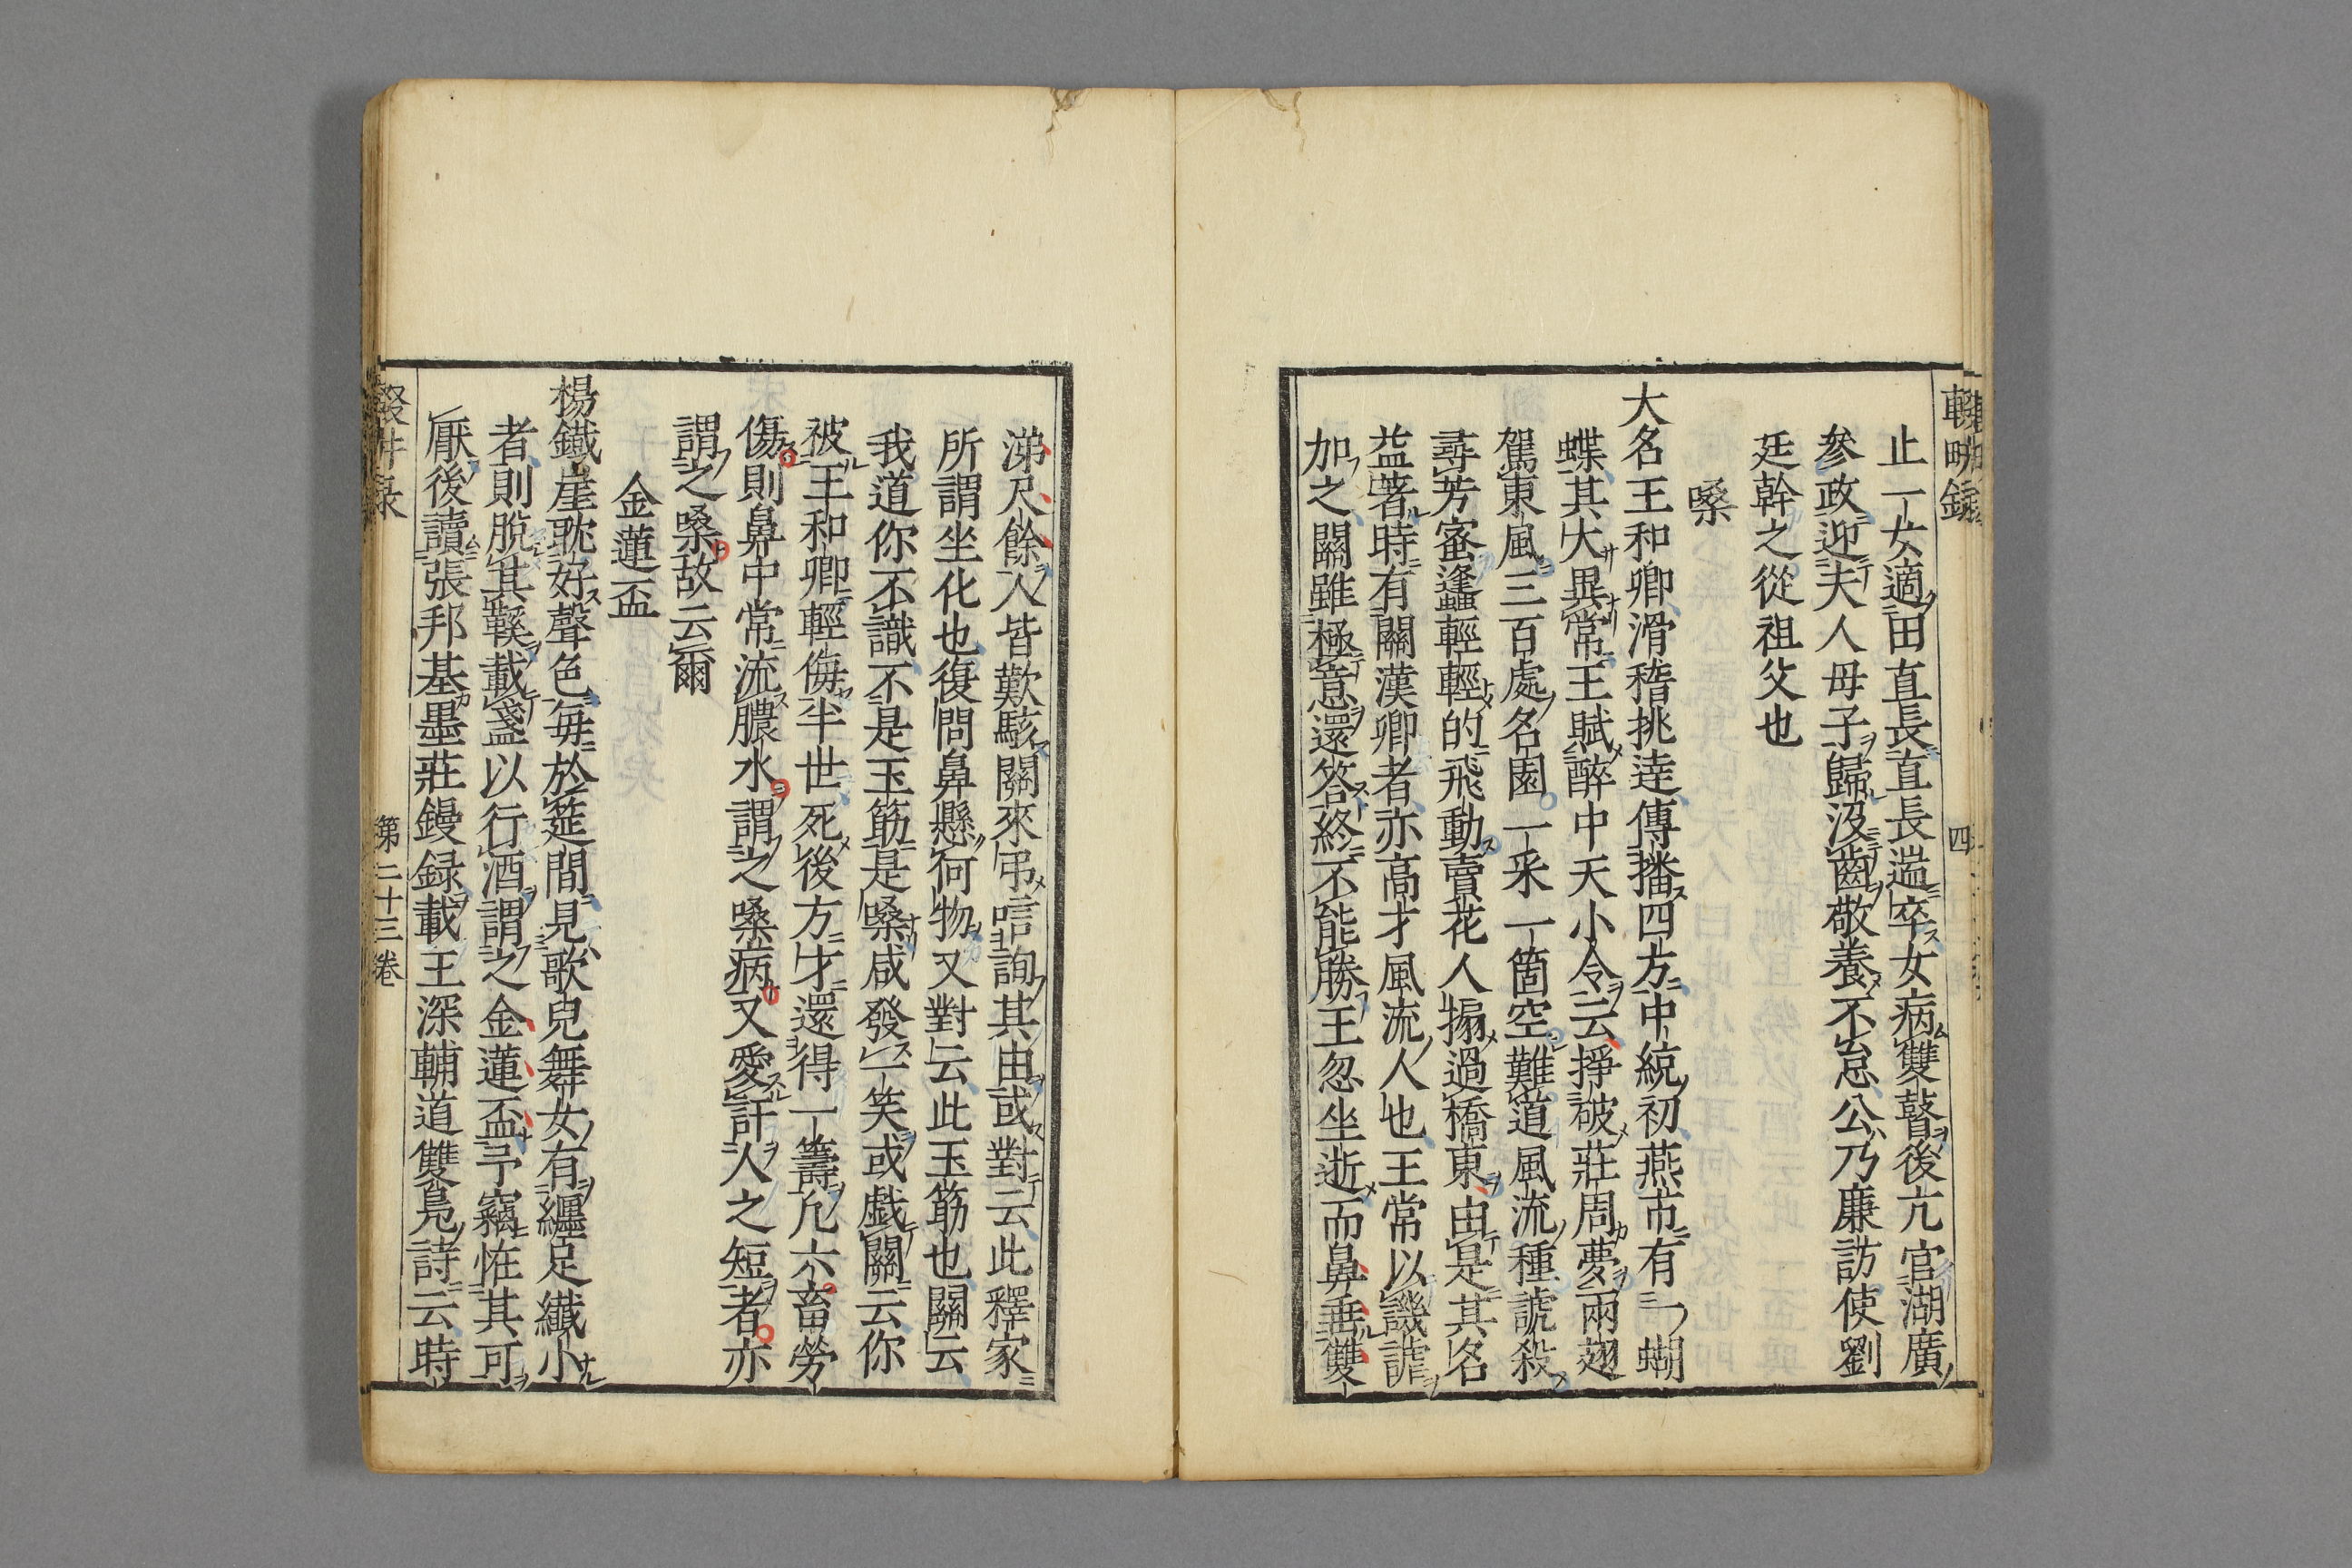 輟畊録
四
止一女適田直長直長遄卒女病雙瞽後亢官湖廣
參政迎夫人母子歸沒齒敬養不怠公乃廉訪使劉
廷幹之從祖父也
嗓
大名王和卿滑稽挑達傳播四方中統初燕市有一蝴
蝶其大異常王賦醉中天小令云掙破莊周夢兩翅
駕東風三百處名園一采一箇空難道風流種諕殺
尋芳蜜蜂輕輕的飛動賣花人搧過橋東由是其名
益著時有關漢卿者亦高才風流人也王常以譏謔
加之關雖極意還答終不能勝王忽坐逝而鼻垂雙
涕尺餘人皆歎駭關來弔唁詢其由或對云此釋家
所謂坐化也復問鼻懸何物又對云此玉筯也關云
我道你不識不是玉筯是嗓咸發一笑或戲關云你
被王和卿輕侮半世死後方才還得一籌凡六畜勞
傷則鼻中常流膿水謂之嗓病又愛訐人之短者亦
謂之嗓故云爾
金蓮盃
楊鐵崖耽好聲色每於筵間見歌兒舞女有纏足纖小
者則脫其鞵載盞以行酒謂之金蓮盃予竊恠其可
厭後讀張邦基墨莊鏝録載王深輔道雙鳧詩云時
第二十三卷